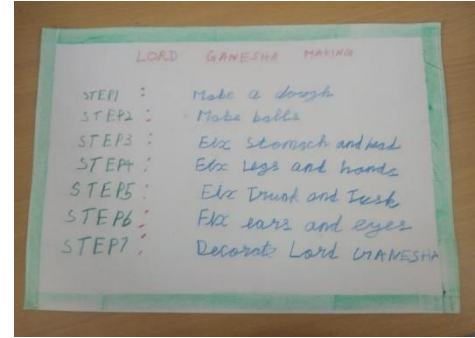 LORD GANESHA MAKING
STEP1 : Make a dough
STEP2 : Make balls
STEP3 : Fix Stomach and head
STEP4 : Fix Legs and hands
STEP5 : Fix Trunk and Tusk
STEP6 : Fix ears and eyes
STEP7 : Decorate Lord GANESHA